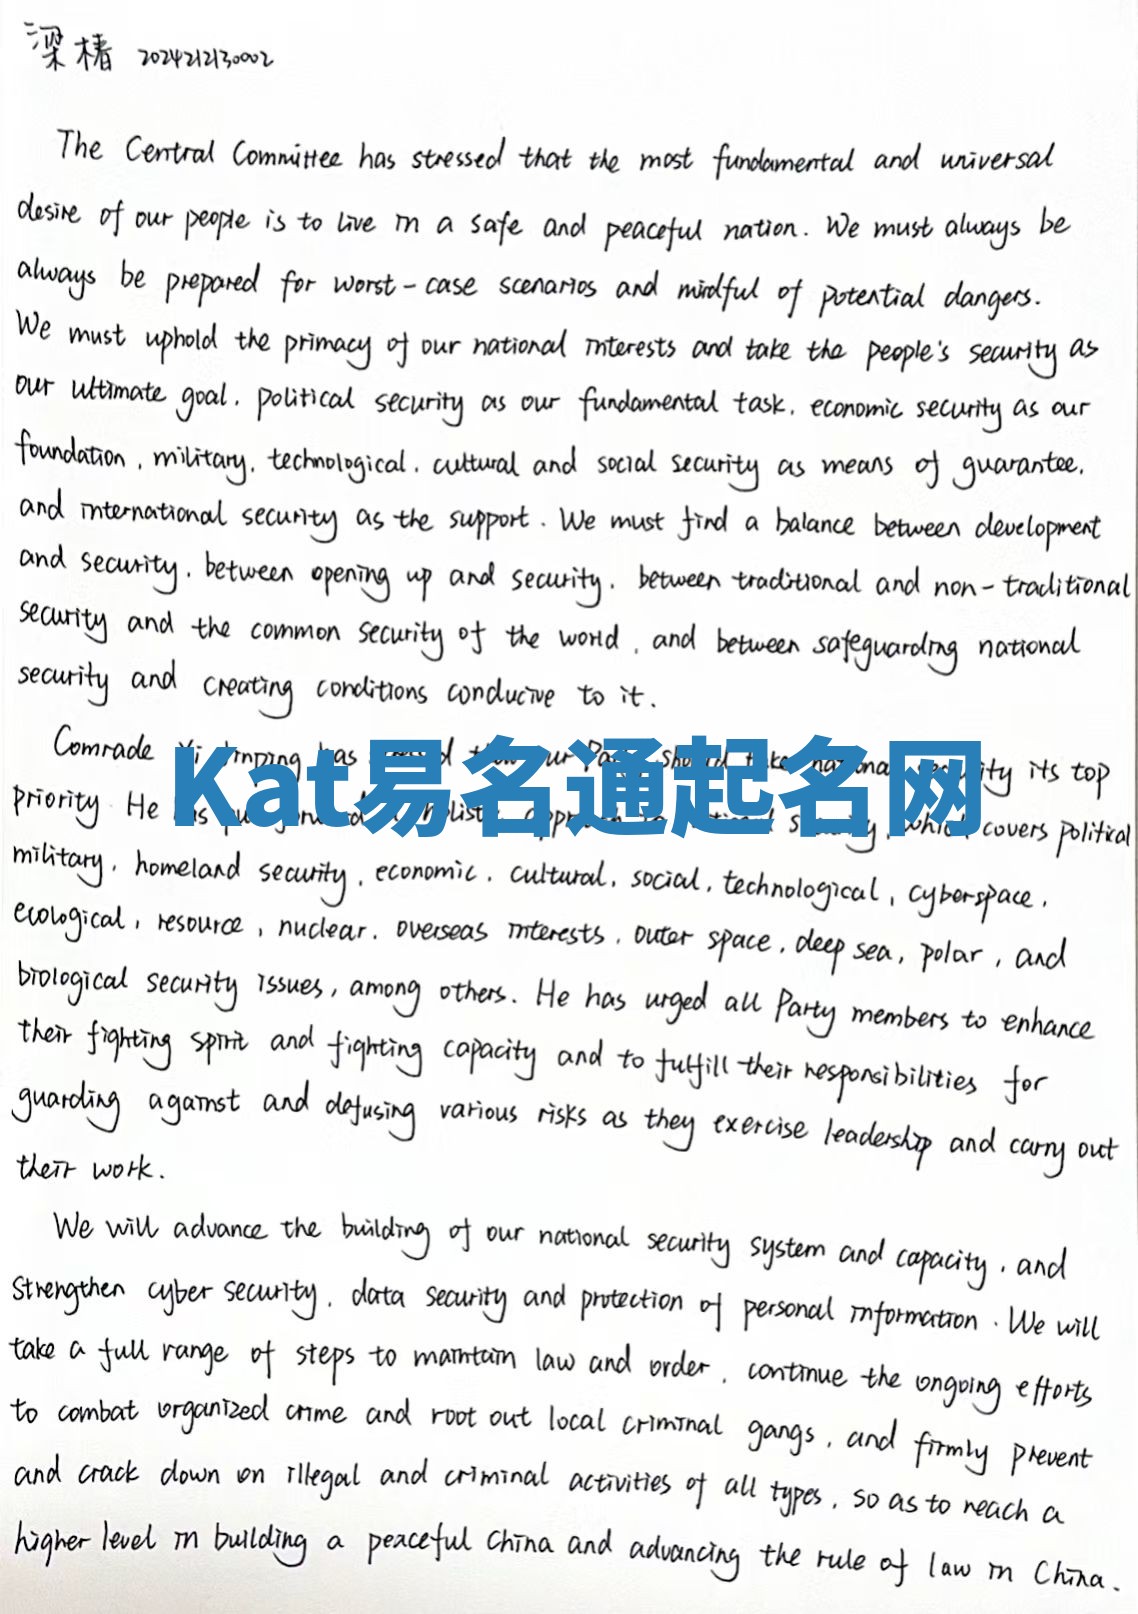 梁椿 2024212130002
The Central Committee has stressed that the most fundamental and universal
desire of our people is to live in a safe and peaceful nation. We must always be
always be prepared for worst-case scenarios and mindful of potential dangers.
We must uphold the primacy of our national interests and take the people's security as
our ultimate goal, political security as our fundamental task, economic security as our
foundation, military, technological, cultural and social security as means of guarantee,
and international security as the support. We must find a balance between development
and security, between opening up and security, between traditional and non-traditional
security and the common security of the world, and between safeguarding national
security and creating conditions conducive to it.
Comrade Xi Jinping has our national security its top
Kat易名通起名网
priority. He which covers political
military, homeland security, economic, cultural, social, technological, cyberspace,
ecological, resource, nuclear, overseas interests, outer space, deep sea, polar, and
biological security issues, among others. He has urged all Party members to enhance
their fighting spirit and fighting capacity and to fulfill their responsibilities for
guarding against and defusing various risks as they exercise leadership and carry out
their work.
We will advance the building of our national security system and capacity, and
strengthen cyber security, data security and protection of personal information. We will
take a full range of steps to maintain law and order, continue the ongoing efforts
to combat organized crime and root out local criminal gangs, and firmly prevent
and crack down on illegal and criminal activities of all types, so as to reach a
higher level in building a peaceful China and advancing the rule of law in China.